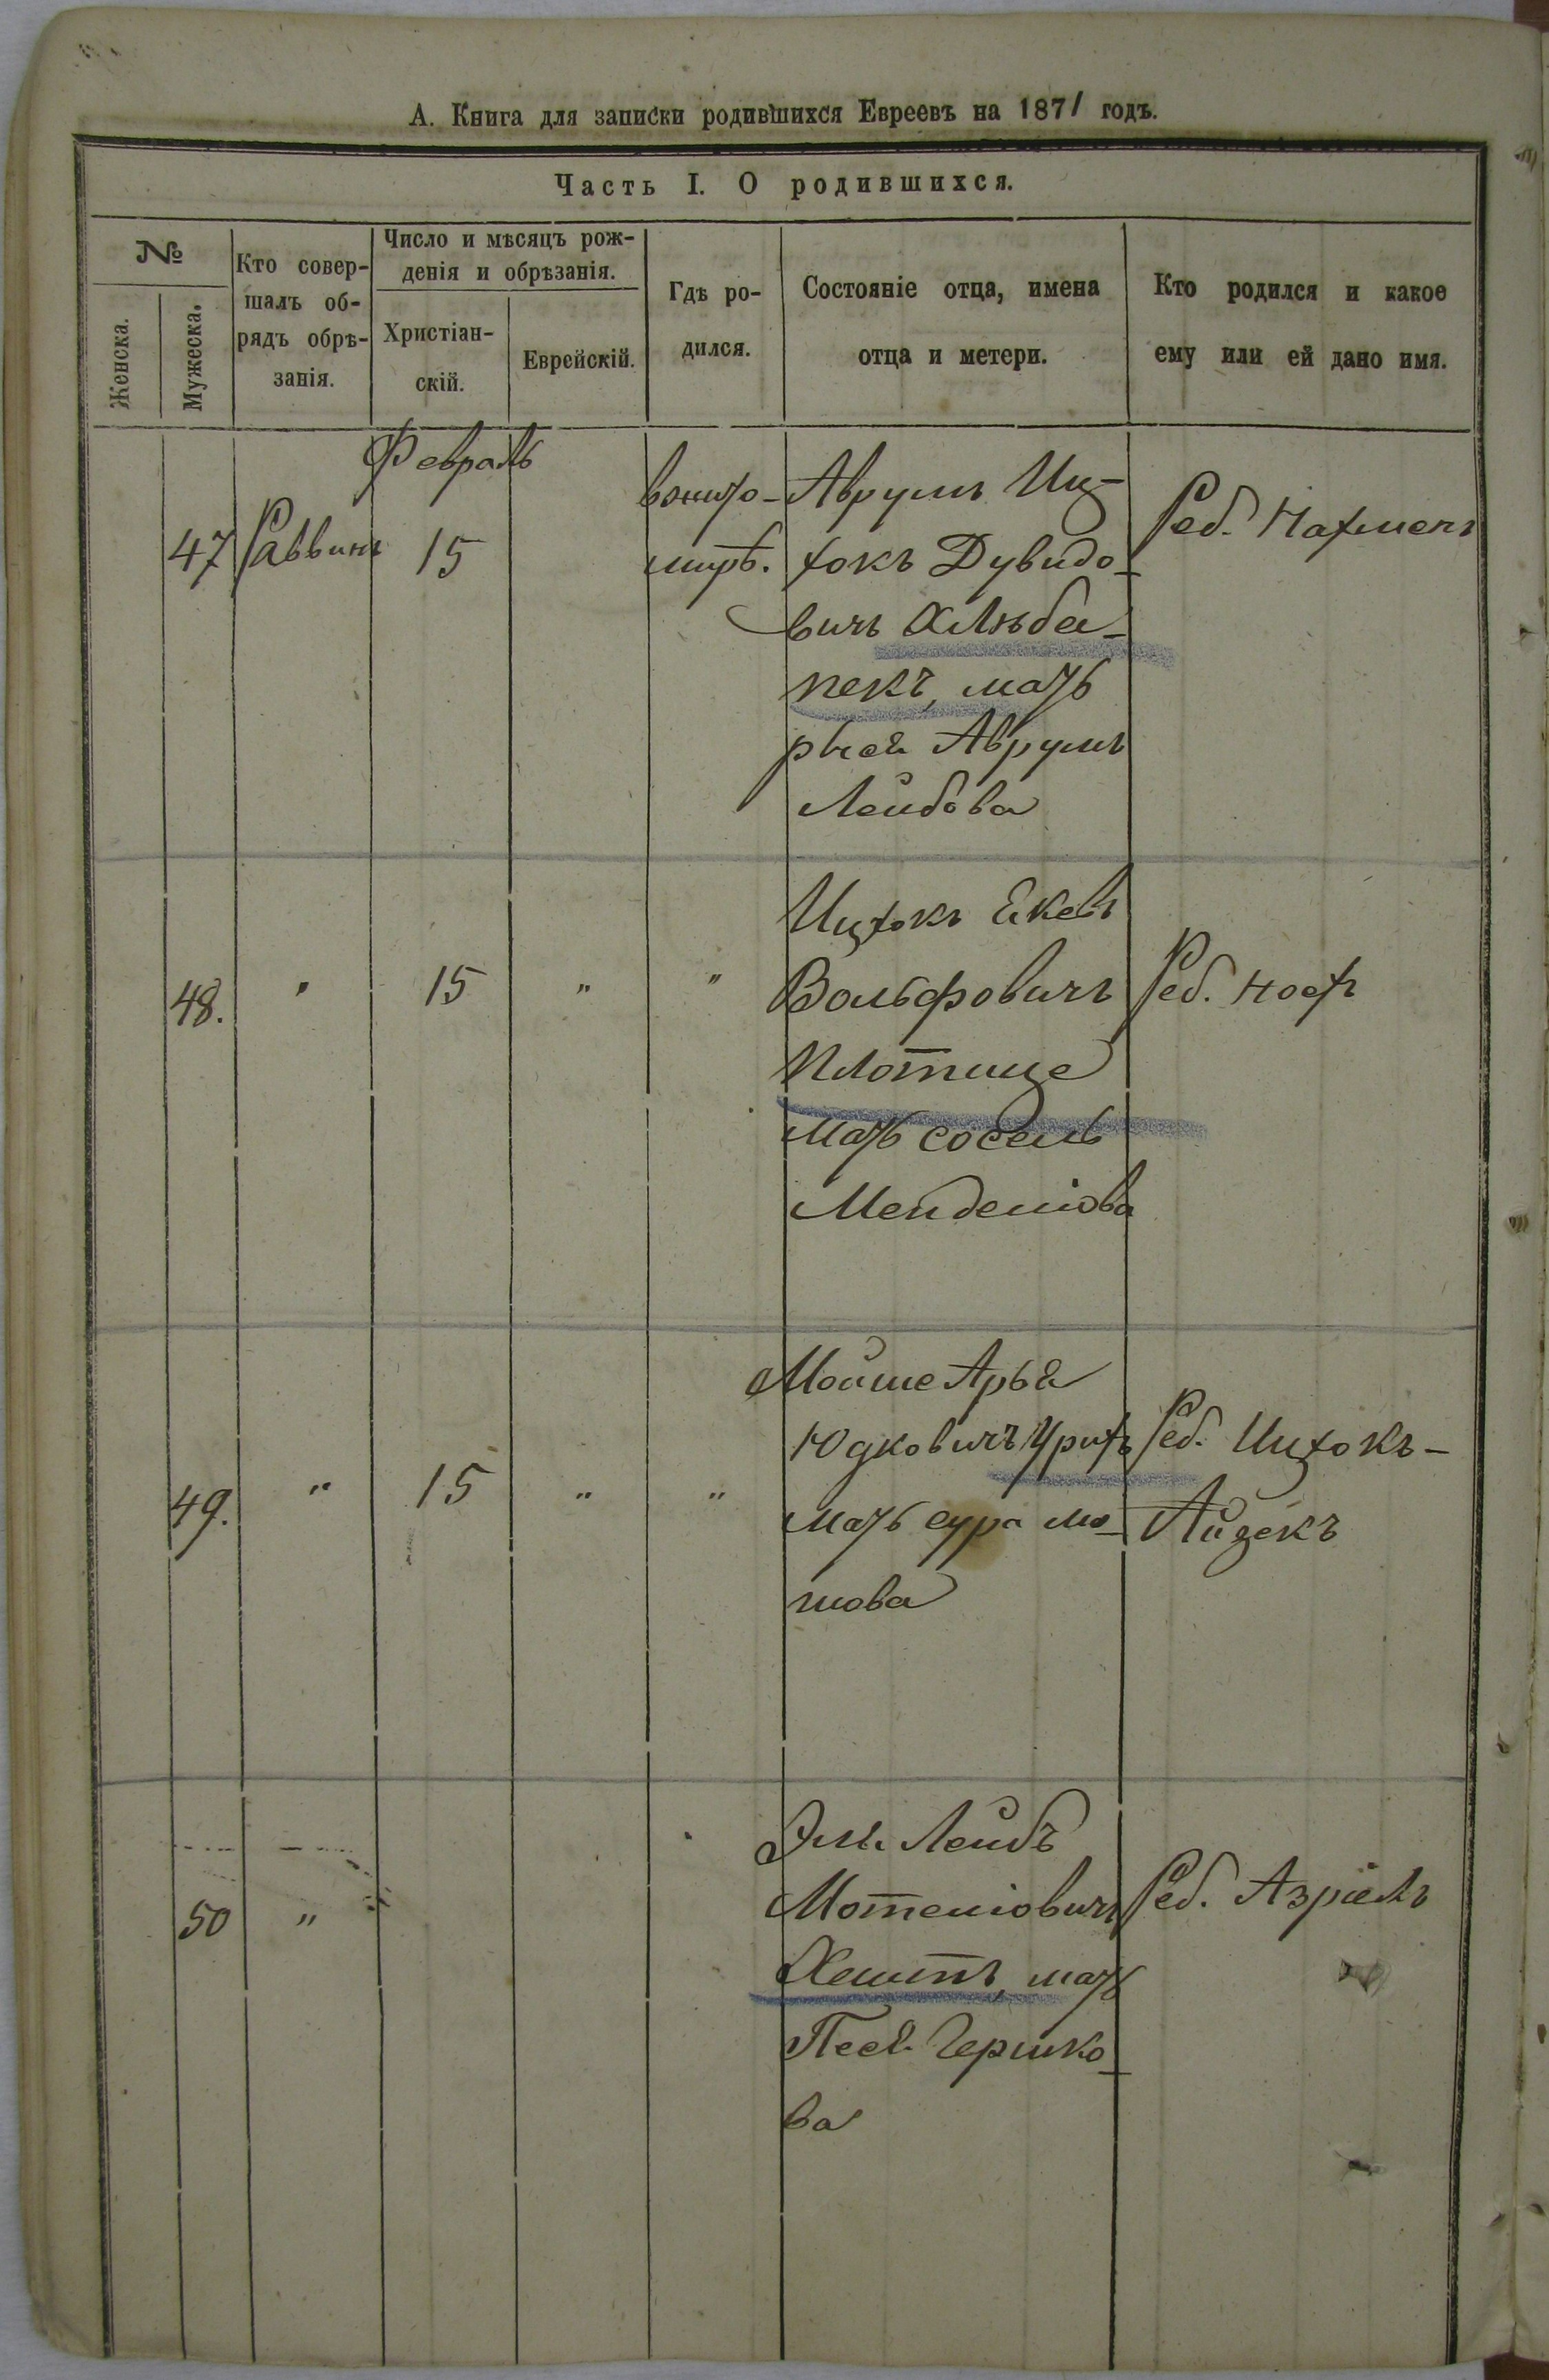 А. Книга для записки родившихся Евреевъ на 1871 годъ.
Часть I. О родившихся.
№
Женска.
Мужеска.
Кто совер-
шалъ об-
рядъ обрѣ-
занія.
Число и мѣсяцъ рож-
денія и обрѣзанія.
Христіан-
скій.
Еврейскій.
Гдѣ ро-
дился.
Состояніе отца, имена
отца и метери.
Кто родился и какое
ему или ей дано имя.
Февраль
47 Раввинъ 15
вжито-
мирѣ.
Аврумъ Иц-
хокъ Дувидо-
вичъ
мать
Аврумъ
Лейбова
Реб. Нахменъ
48. " 15 " "
Ицхокъ Екевъ
Вольфовичъ
Плотице
мать сосель
Менделіова
Реб. Ноехъ
49. " 15 " "
Мойше Арье
Юдковичъ
мать сура мо-
шова
Реб. Ицхокъ-
Айзекъ
50 "
Эль Лейбъ
Мотеліовичъ
мать
Песе Гершко-
ва
Реб. Азріель